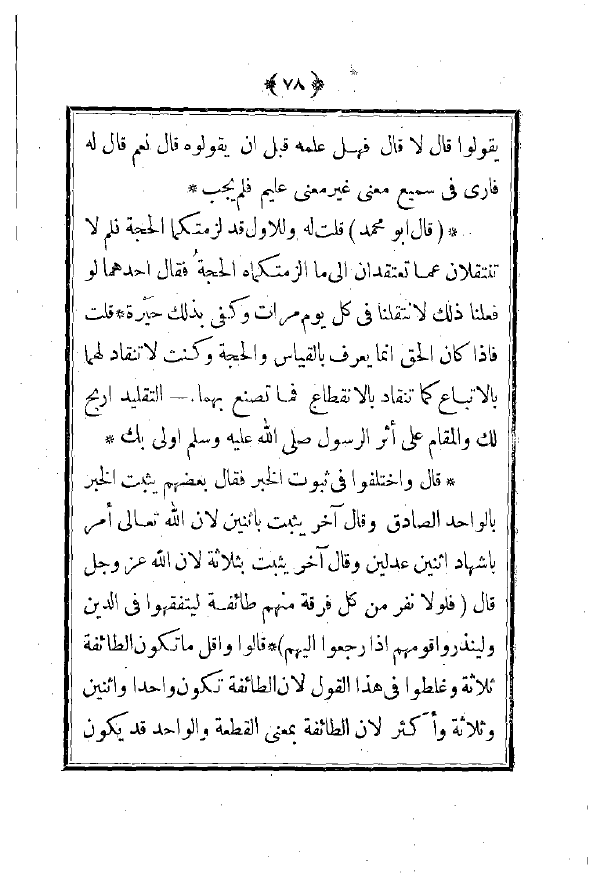 ﴿ ٧٨ ﴾
يقولوا قال لا قال فهل علمه قبل ان يقولوه قال نعم قال له
فارى فى سميع معنى غير معنى عليم فلم يجب *
* ( قال ابو محمد ) قلت له وللاول قد لزمتكما الحجة فلم لا
تنتقلان عما تعتقدان الى ما الزمتكماه الحجة فقال احدهما لو
فعلنا ذلك لانتقلنا فى كل يوم مرات وكفى بذلك حيرة * قلت
فاذا كان الحق انما يعرف بالقياس والحجة وكنت لا تنقاد لهما
بالاتباع كما تنقاد بالانقطاع فما تصنع بهما .— التقليد اربح
لك والمقام على أثر الرسول صلى الله عليه وسلم اولى بك *
* قال واختلفوا فى ثبوت الخبر فقال بعضهم يثبت الخبر
بالواحد الصادق وقال آخر يثبت باثنين لان الله تعالى أمر
باشهاد اثنين عدلين وقال آخر يثبت بثلاثة لان الله عز وجل
قال ( فلولا نفر من كل فرقة منهم طائفة ليتفقهوا فى الدين
ولينذروا قومهم اذا رجعوا اليهم ) * قالوا واقل ما تكون الطائفة
ثلاثة وغلطوا فى هذا القول لان الطائفة تكون واحدا واثنين
وثلاثة وأكثر لان الطائفة بمعنى القطعة والواحد قد يكون